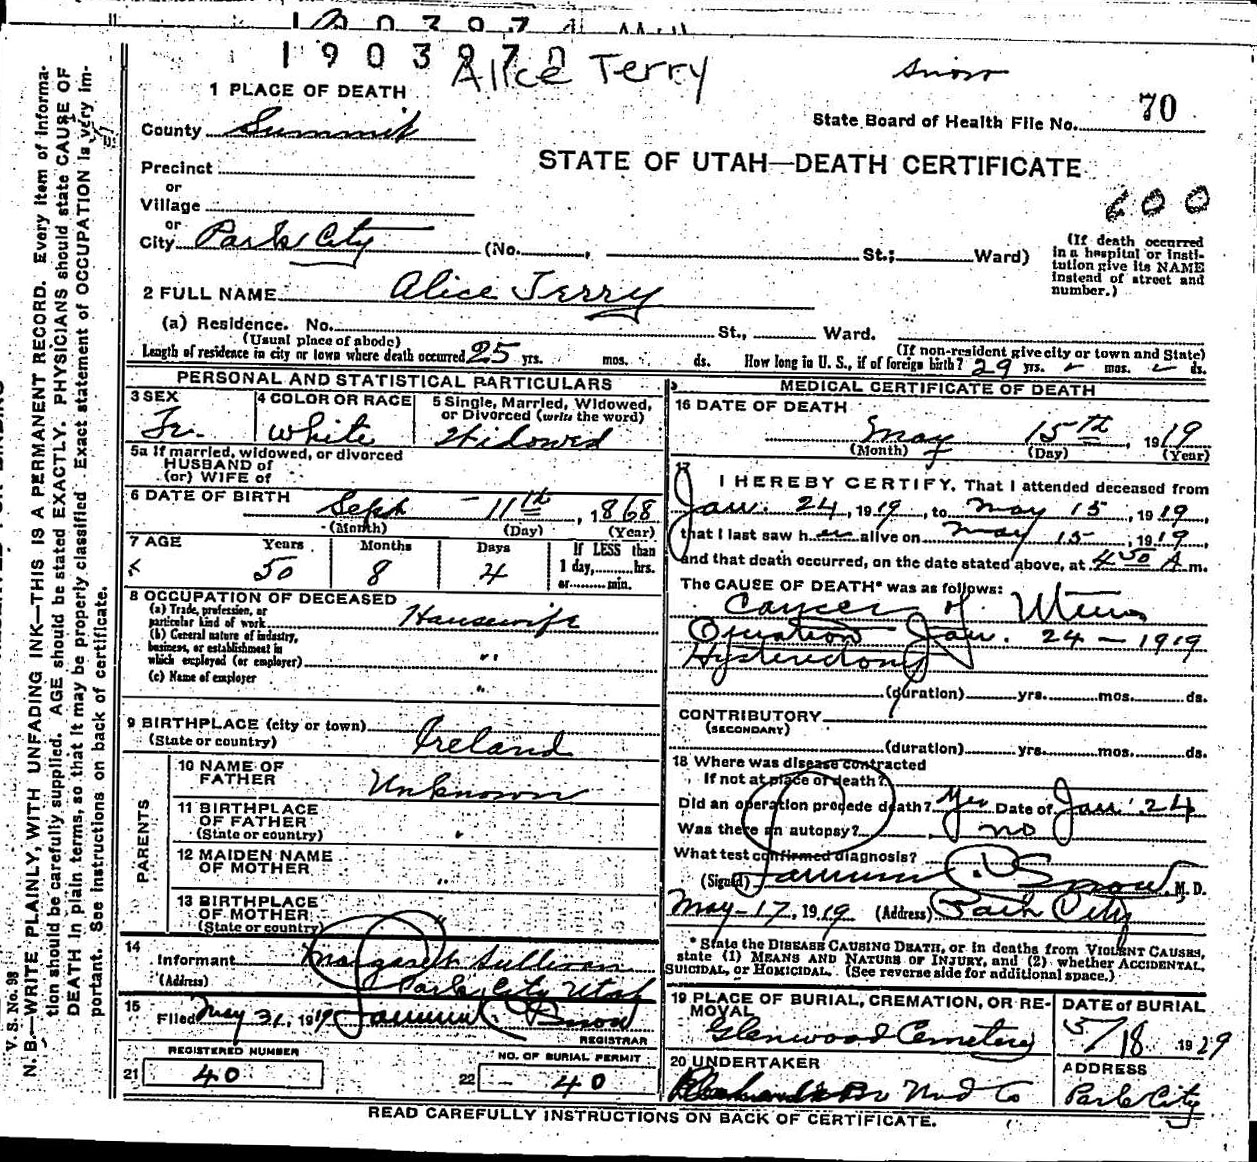 1903970
Alice Terry
Snow
1 PLACE OF DEATH
State Board of Health File No. 70
County Summit
STATE OF UTAH—DEATH CERTIFICATE
Precinct
or
Village
or
City Park City (No. , St.; Ward)
600
(If death occurred
in a hospital or insti-
tution give its NAME
instead of street and
number.)
2 FULL NAME Alice Terry
(a) Residence. No. St., Ward.
(Usual place of abode)
(If non-resident give city or town and State)
Length of residence in city or town where death occurred 25 yrs. mos. ds. How long in U. S., if of foreign birth? 29 yrs. mos. ds.
PERSONAL AND STATISTICAL PARTICULARS
3 SEX
4 COLOR OR RACE
5 Single, Married, Widowed,
or Divorced (write the word)
White
Widowed
5a If married, widowed, or divorced
HUSBAND of
(or) WIFE of
6 DATE OF BIRTH Sept - 11th, 1868
(Month) (Day) (Year)
7 AGE Years Months Days
If LESS than
1 day, hrs.
or min.
50 8 4
8 OCCUPATION OF DECEASED
(a) Trade, profession, or
particular kind of work Housewife
(b) General nature of industry,
business, or establishment in
which employed (or employer) "
(c) Name of employer "
9 BIRTHPLACE (city or town)
(State or country) Ireland
PARENTS
10 NAME OF
FATHER Unknown
11 BIRTHPLACE
OF FATHER
(State or country) "
12 MAIDEN NAME
OF MOTHER "
13 BIRTHPLACE
OF MOTHER
(State or country) "
14
Informant Margaret Sullivan
(Address) Park City Utah
15
Filed May 31, 1919
REGISTRAR
REGISTERED NUMBER
21 40
NO. OF BURIAL PERMIT
22 - 40
MEDICAL CERTIFICATE OF DEATH
16 DATE OF DEATH
May 15th, 1919
(Month) (Day) (Year)
17
I HEREBY CERTIFY, That I attended deceased from
Jan. 24, 1919, to May 15, 1919,
that I last saw her alive on May 15, 1919,
and that death occurred, on the date stated above, at 4 50 A m.
The CAUSE OF DEATH* was as follows:
Cancer of Uterus
Operation Jan. 24 - 1919
Hysterectomy
(duration) yrs. mos. ds.
CONTRIBUTORY
(SECONDARY)
(duration) yrs. mos. ds.
18 Where was disease contracted
If not at place of death?
Did an operation precede death? Yes Date of Jan. 24
Was there an autopsy? no
What test confirmed diagnosis?
(Signed) Snow, M. D.
May - 17, 1919 (Address) Park City
* State the DISEASE CAUSING DEATH, or in deaths from VIOLENT CAUSES,
state (1) MEANS AND NATURE OF INJURY, and (2) whether ACCIDENTAL,
SUICIDAL, or HOMICIDAL. (See reverse side for additional space.)
19 PLACE OF BURIAL, CREMATION, OR RE-
MOVAL
Glenwood Cemetery
DATE of BURIAL
5/18 1919
20 UNDERTAKER
ADDRESS
Park City
READ CAREFULLY INSTRUCTIONS ON BACK OF CERTIFICATE.
V. S. No. 98
N. B.—WRITE PLAINLY, WITH UNFADING INK—THIS IS A PERMANENT RECORD. Every item of informa-
tion should be carefully supplied. AGE should be stated EXACTLY. PHYSICIANS should state CAUSE OF
DEATH in plain terms, so that it may be properly classified. Exact statement of OCCUPATION is very im-
portant. See instructions on back of certificate.